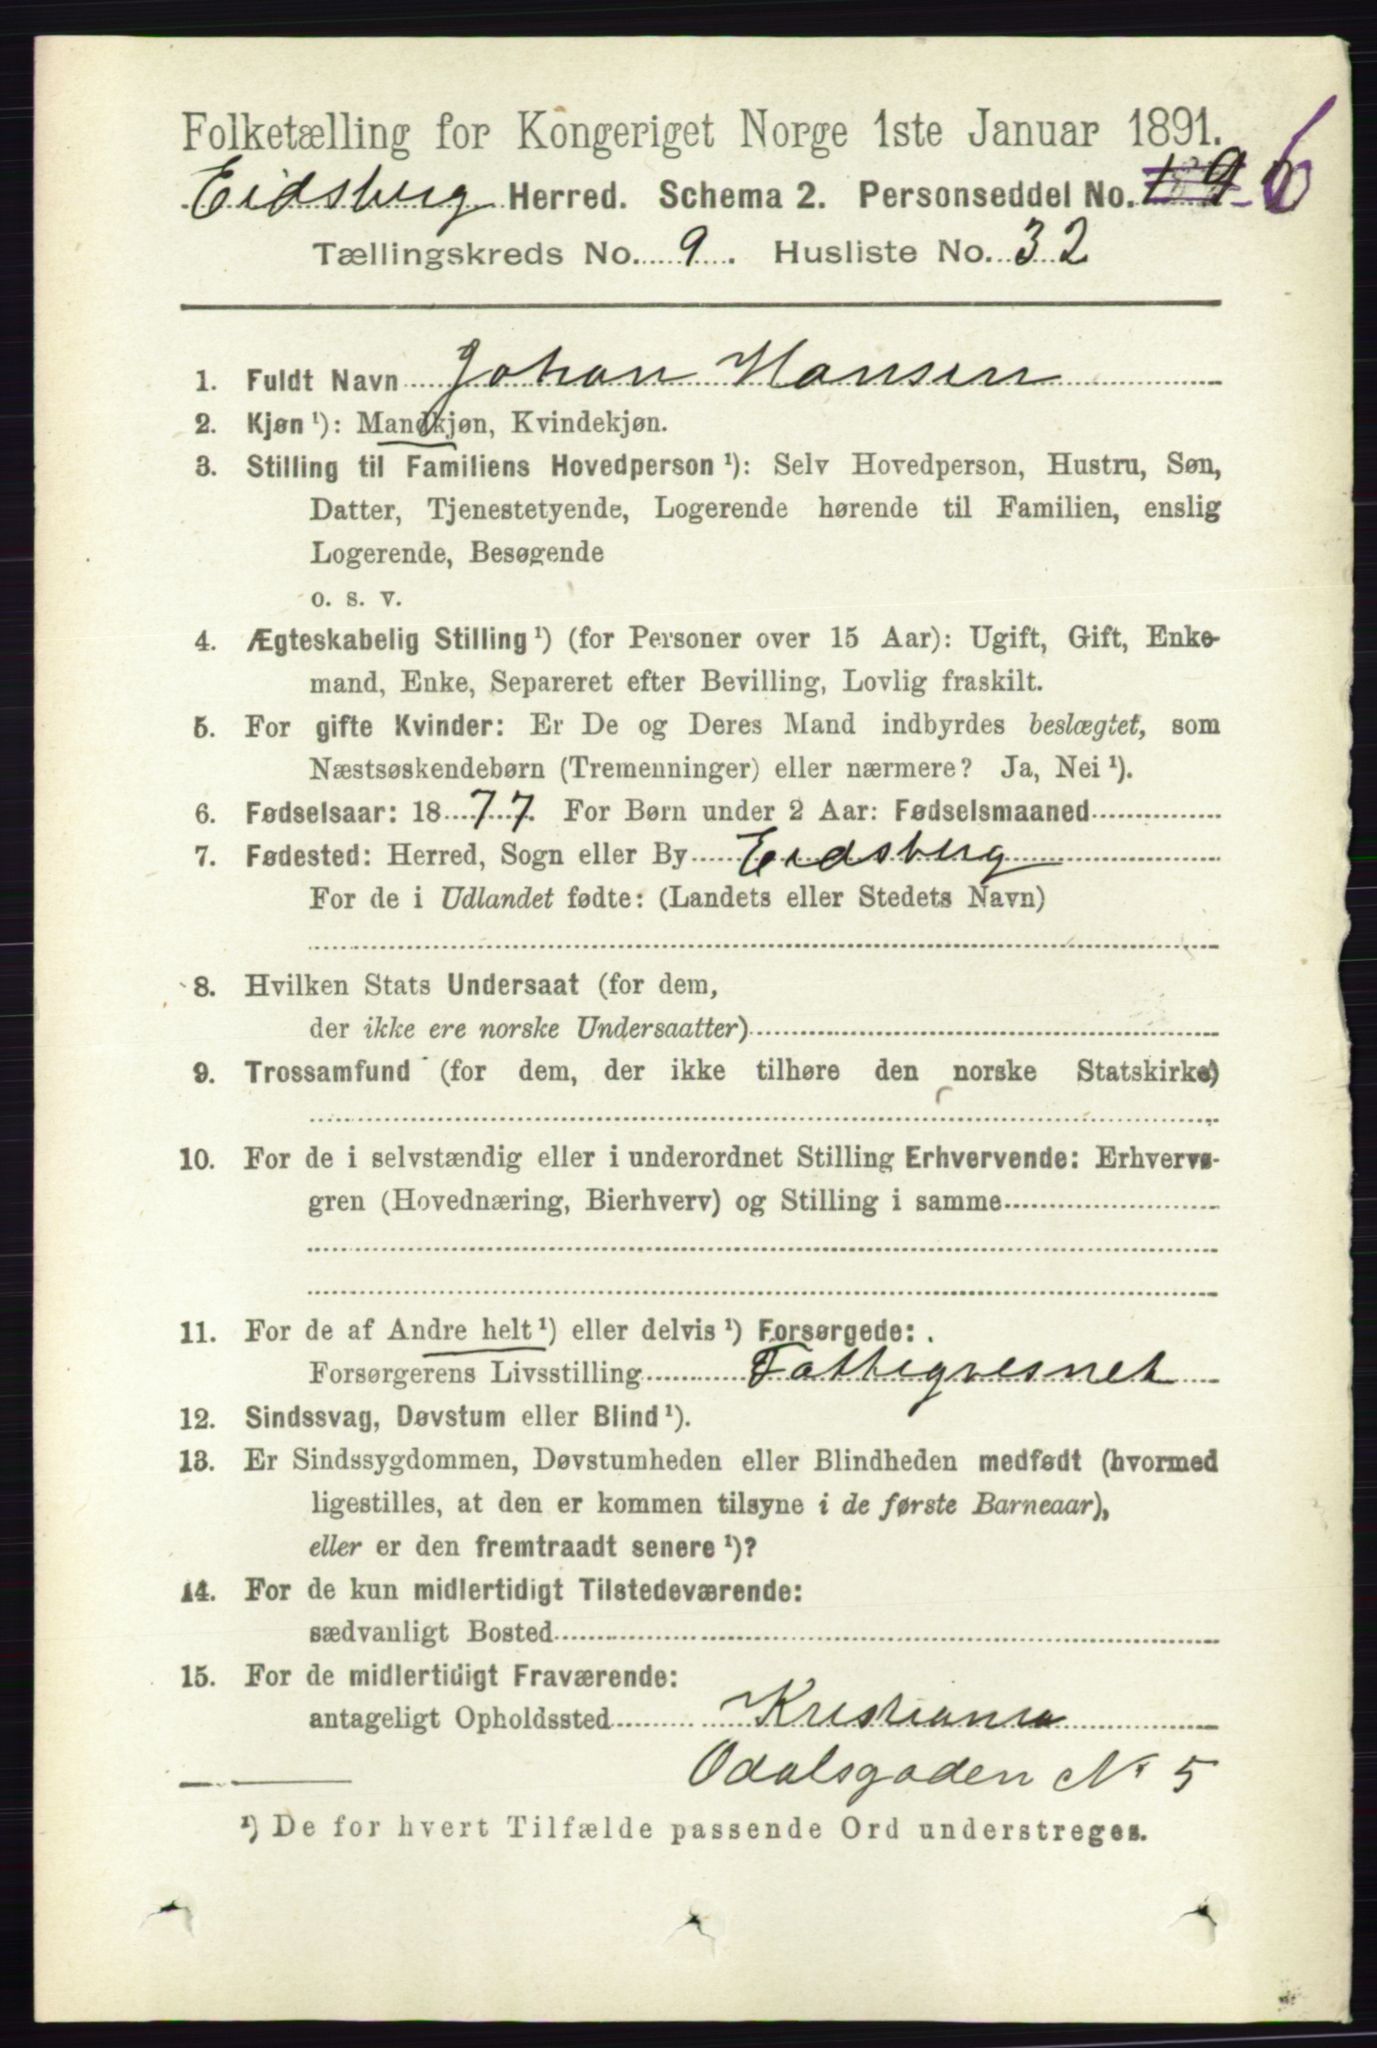 Folketælling for Kongeriget Norge 1ste Januar 1891.
Eidsberg Herred. Schema 2. Personseddel No. 196
Tællingskreds No. 9. Husliste No. 32
1. Fuldt Navn Johan Hansen
2. Kjøn ¹): Mandkjøn, Kvindekjøn.
3. Stilling til Familiens Hovedperson ¹): Selv Hovedperson, Hustru, Søn,
Datter, Tjenestetyende, Logerende hørende til Familien, enslig
Logerende, Besøgende
o. s. v.
4. Ægteskabelig Stilling ¹) (for Personer over 15 Aar): Ugift, Gift, Enke-
mand, Enke, Separeret efter Bevilling, Lovlig fraskilt.
5. For gifte Kvinder: Er De og Deres Mand indbyrdes beslægtet, som
Næstsøskendebørn (Tremenninger) eller nærmere? Ja, Nei ¹).
6. Fødselsaar: 1877. For Børn under 2 Aar: Fødselsmaaned
7. Fødested: Herred, Sogn eller By Eidsberg
For de i Udlandet fødte: (Landets eller Stedets Navn)
8. Hvilken Stats Undersaat (for dem,
der ikke ere norske Undersaatter)
9. Trossamfund (for dem, der ikke tilhøre den norske Statskirke)
10. For de i selvstændig eller i underordnet Stilling Erhvervende: Erhvervs-
gren (Hovednæring, Bierhverv) og Stilling i samme
11. For de af Andre helt ¹) eller delvis ¹) Forsørgede:
Forsørgerens Livsstilling Fattigvesnet
12. Sindssvag, Døvstum eller Blind ¹).
13. Er Sindssygdommen, Døvstumheden eller Blindheden medfødt (hvormed
ligestilles, at den er kommen tilsyne i de første Barneaar),
eller er den fremtraadt senere ¹)?
14. For de kun midlertidigt Tilstedeværende:
sædvanligt Bosted
15. For de midlertidigt Fraværende:
antageligt Opholdssted Kristiania
Odalsgaden No 5
¹) De for hvert Tilfælde passende Ord understreges.